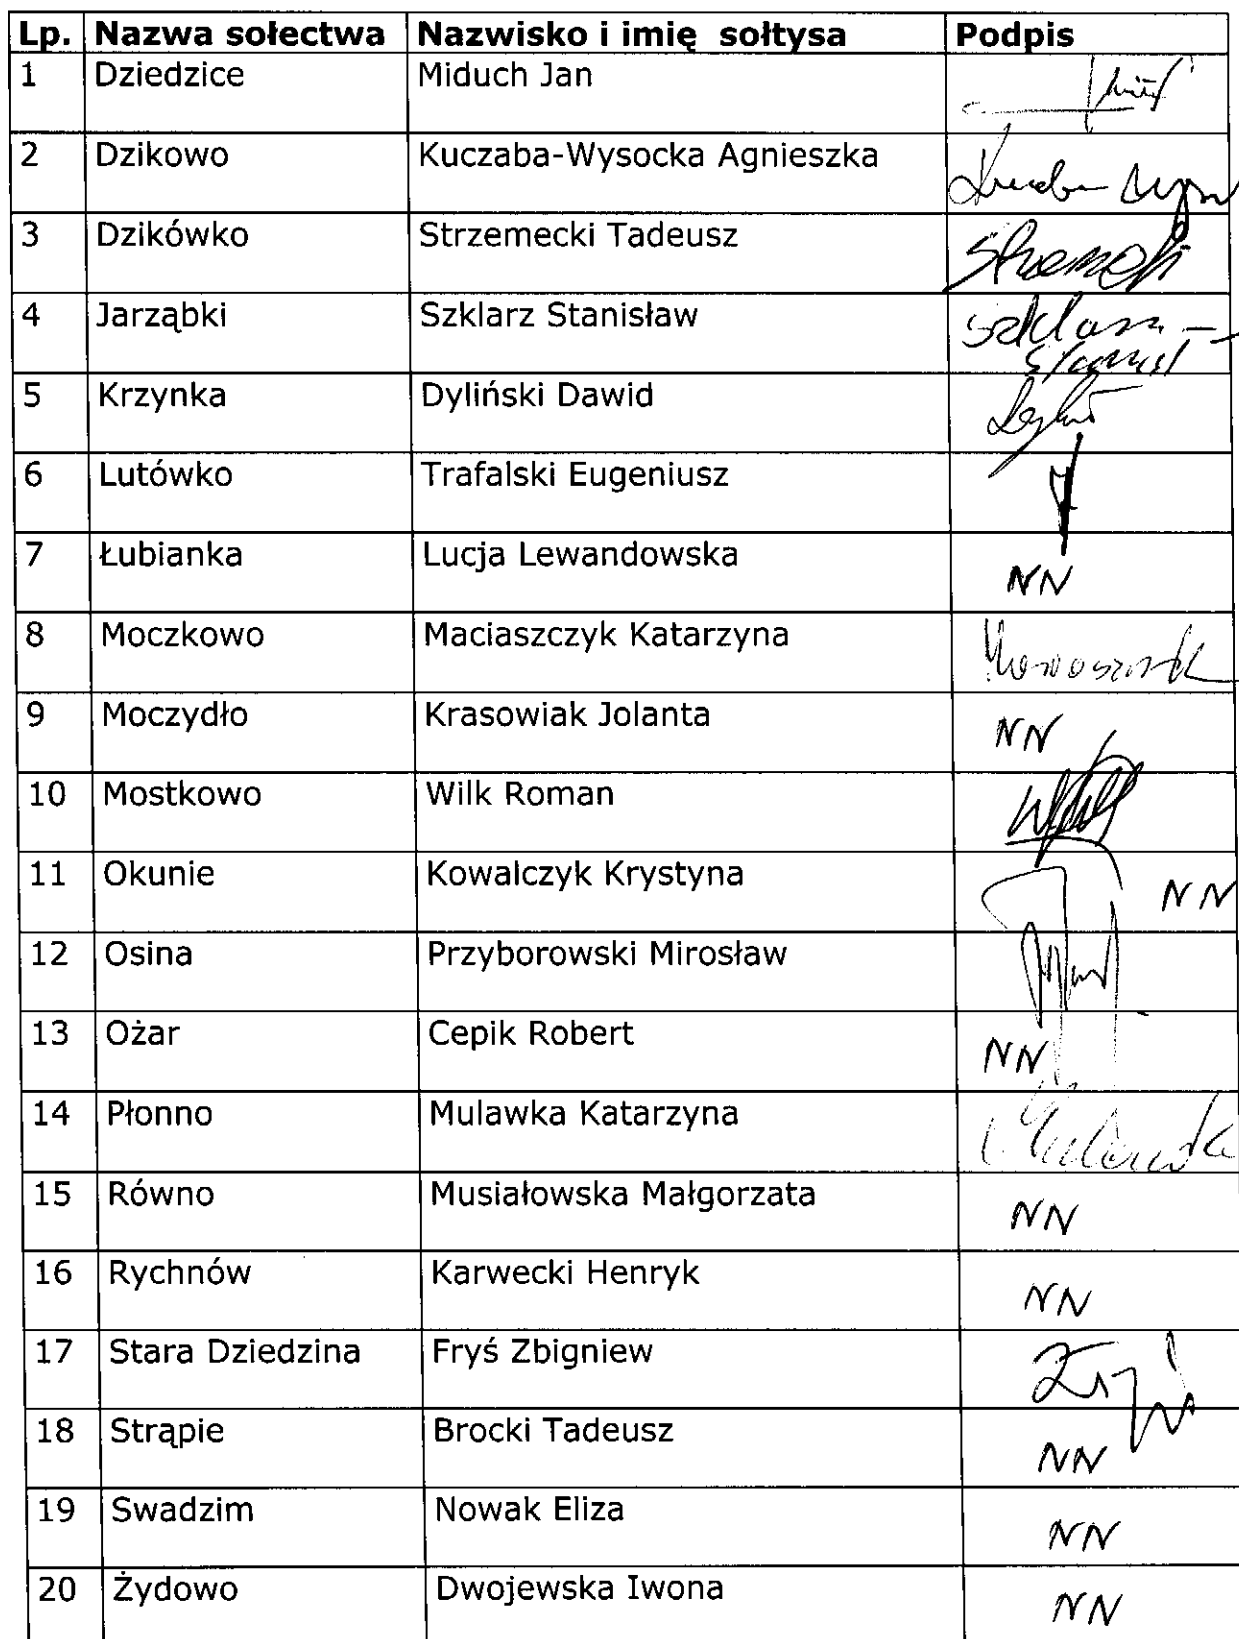 Lp. Nazwa sołectwa Nazwisko i imię sołtysa Podpis
1 Dziedzice Miduch Jan
2 Dzikowo Kuczaba-Wysocka Agnieszka
3 Dzikówko Strzemecki Tadeusz
4 Jarząbki Szklarz Stanisław
5 Krzynka Dyliński Dawid
6 Lutówko Trafalski Eugeniusz
7 Łubianka Lucja Lewandowska NN
8 Moczkowo Maciaszczyk Katarzyna
9 Moczydło Krasowiak Jolanta NN
10 Mostkowo Wilk Roman
11 Okunie Kowalczyk Krystyna NN
12 Osina Przyborowski Mirosław
13 Ożar Cepik Robert NN
14 Płonno Mulawka Katarzyna
15 Równo Musiałowska Małgorzata NN
16 Rychnów Karwecki Henryk NN
17 Stara Dziedzina Fryś Zbigniew
18 Strąpie Brocki Tadeusz NN
19 Swadzim Nowak Eliza NN
20 Żydowo Dwojewska Iwona NN